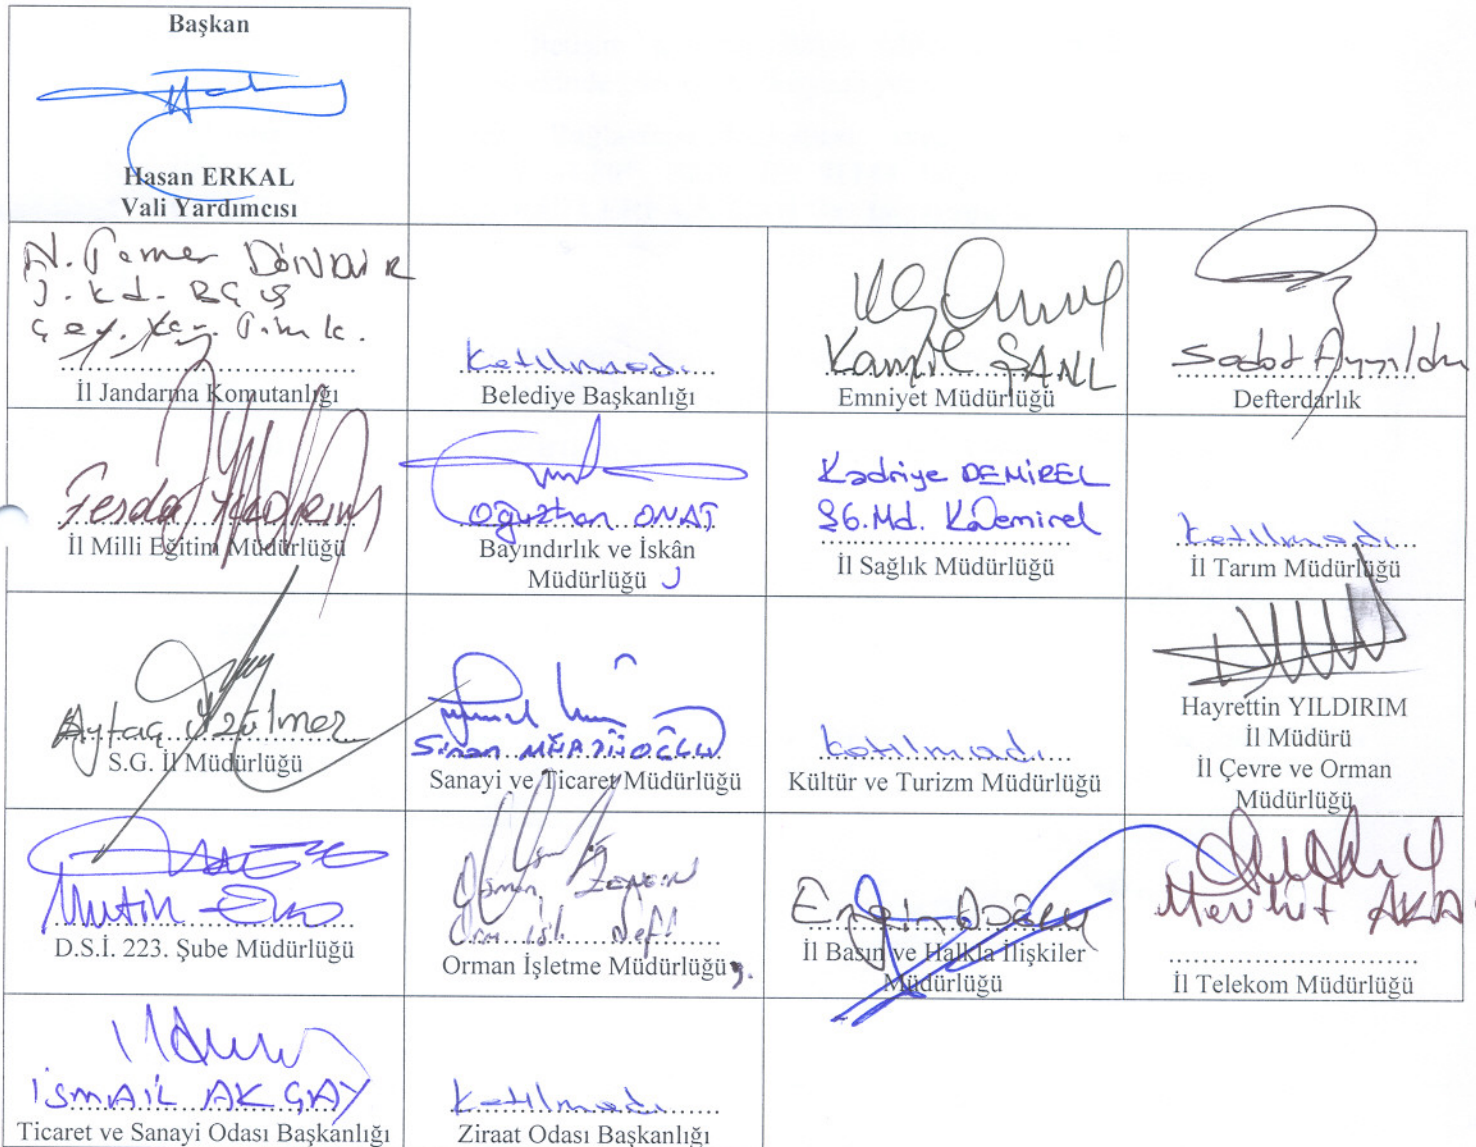 Başkan
Hasan ERKAL
Vali Yardımcısı
J. Kd. BÇVŞ
İl Jandarma Komutanlığı
Katılmadı
Belediye Başkanlığı
Kamil ŞANL
Emniyet Müdürlüğü
Defterdarlık
Ferda
İl Milli Eğitim Müdürlüğü
Oğuzhan ONAT
Bayındırlık ve İskân
Müdürlüğü
Kadriye DEMİREL
Md. KDemirel
İl Sağlık Müdürlüğü
Katılmadı
İl Tarım Müdürlüğü
Aytaç
S.G. İl Müdürlüğü
Sinan
Sanayi ve Ticaret Müdürlüğü
Katılmadı
Kültür ve Turizm Müdürlüğü
Hayrettin YILDIRIM
İl Müdürü
İl Çevre ve Orman
Müdürlüğü
D.S.İ. 223. Şube Müdürlüğü
Osman ZENGİN
Orm. İşl. Şefi
Orman İşletme Müdürlüğü
Engin
İl Basın ve Halkla İlişkiler
Müdürlüğü
Mevlüt
İl Telekom Müdürlüğü
İSMAİL AKÇAY
Ticaret ve Sanayi Odası Başkanlığı
Katılmadı
Ziraat Odası Başkanlığı